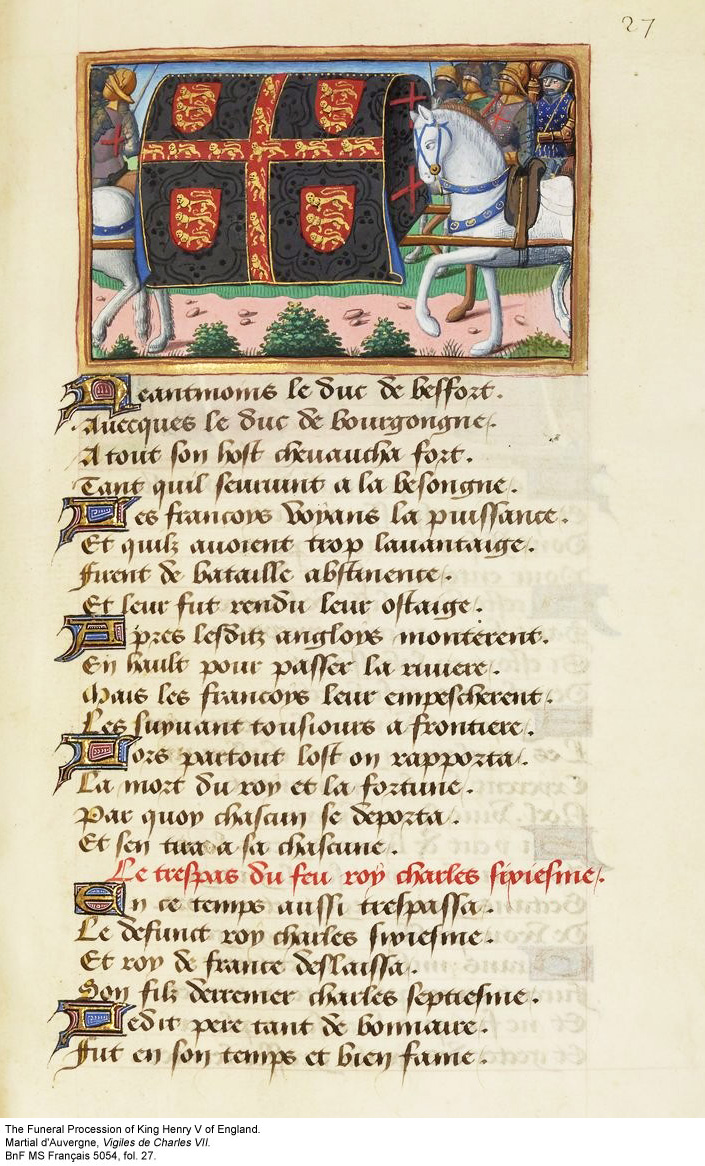 27
Neantmoins le duc de bessort.
Auecques le duc de bourgongne.
A tout son host cheuaucha fort.
Tant quil seuruint a la besongne.
Les francoys voyans la puissance.
Et quilz auoient trop lauantaige.
Firent de bataille abstinence.
Et leur fut rendu leur ostaige.
Apres lesditz angloys monterent.
En hault pour passer la riuiere.
Mais les francoys leur empescherent.
Les suyuant tousiours a frontiere.
Lors partout lost on rapporta.
La mort du roy et la fortune.
Par quoy chascun se deporta.
Et sen tira a sa chascune.
Le trespas du feu roy charles sixiesme.
En ce temps aussi trespassa.
Le defunct roy charles sixiesme.
Et roy de france deslaissa.
Son filz derrenier charles septiesme.
Ledit pere tant de bonnaire.
Fut en son temps et bien fame.
The Funeral Procession of King Henry V of England.
Martial d'Auvergne, Vigiles de Charles VII.
BnF MS Français 5054, fol. 27.